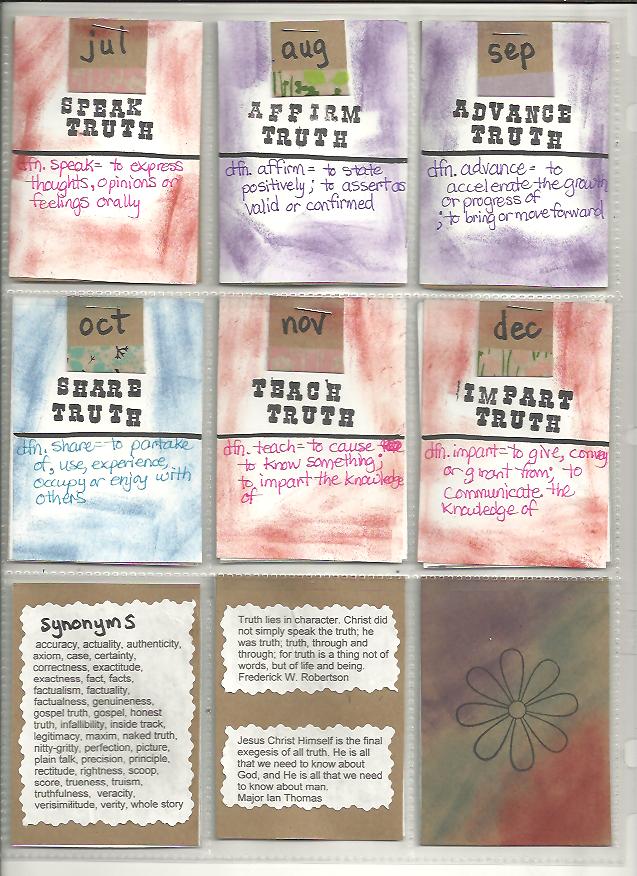 jul
SPEAK
TRUTH
dfn. speak= to express
thoughts, opinions or
feelings orally
aug
AFFIRM
TRUTH
dfn. affirm= to state
positively; to assert as
valid or confirmed
sep
ADVANCE
TRUTH
dfn. advance= to
accelerate the growth
or progress of
; to bring or move forward
oct
SHARE
TRUTH
dfn. share= to partake
of, use, experience,
occupy or enjoy with
others
nov
TEACH
TRUTH
dfn. teach= to cause
to know something;
to impart the knowledge
of
dec
IMPART
TRUTH
dfn. impart= to give, convey
or grant from; to
communicate the
knowledge of
synonyms
accuracy, actuality, authenticity,
axiom, case, certainty,
correctness, exactitude,
exactness, fact, facts,
factualism, factuality,
factualness, genuineness,
gospel truth, gospel, honest
truth, infallibility, inside track,
legitimacy, maxim, naked truth,
nitty-gritty, perfection, picture,
plain talk, precision, principle,
rectitude, rightness, scoop,
score, trueness, truism,
truthfulness, veracity,
verisimilitude, verity, whole story
Truth lies in character. Christ did
not simply speak the truth; he
was truth; truth, through and
through; for truth is a thing not of
words, but of life and being.
Frederick W. Robertson
Jesus Christ Himself is the final
exegesis of all truth. He is all
that we need to know about
God, and He is all that we need
to know about man.
Major Ian Thomas